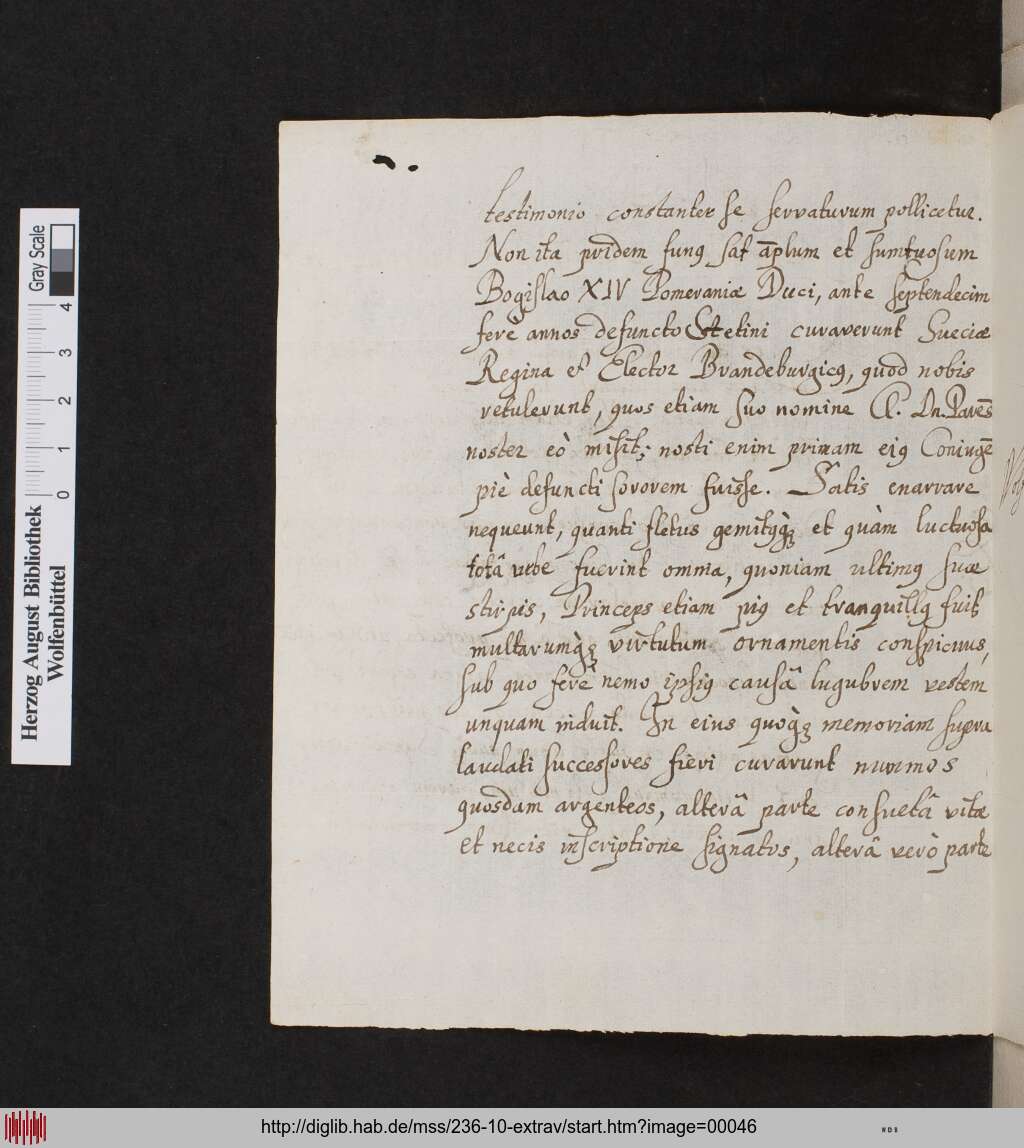 testimonio constanter se servaturum pollicetur.
Non ita pridem funꝰ sat āplum et sumtuosum
Bogislao XIV Pomeraniæ Duci, ante septendecim
ferè annos defuncto Stetini curaverunt Sueciæ
Regina et Elector Brandeburgicꝰ, quod nobis
retulerunt, quos etiam suo nomine Cl. Dn. Parēs
noster eò misit; nosti enim primam eiꝰ Coniugē
piè defuncti sororem fuisse. Satis enarrare
nequeunt, quanti fletus gemitꝰq̀ꝫ et quàm luctuosa
totâ urbe fuerint omnia, quoniam ultimꝰ suæ
stirpis, Princeps etiam piꝰ et tranquillꝰ fuit
multarumq̀ꝫ virtutum ornamentis conspicuus,
sub quo ferè nemo ipsiꝰ causâ lugubrem vestem
unquam induit. In eius quoq̀ꝫ memoriam supra
laudati successores fieri curarunt nummos
quosdam argenteos, alterâ parte consuetâ vitæ
et necis inscriptione signatos, alterâ verò parte
Herzog August Bibliothek
Wolfenbüttel
0 1 2 3 4
Gray Scale
http://diglib.hab.de/mss/236-10-extrav/start.htm?image=00046